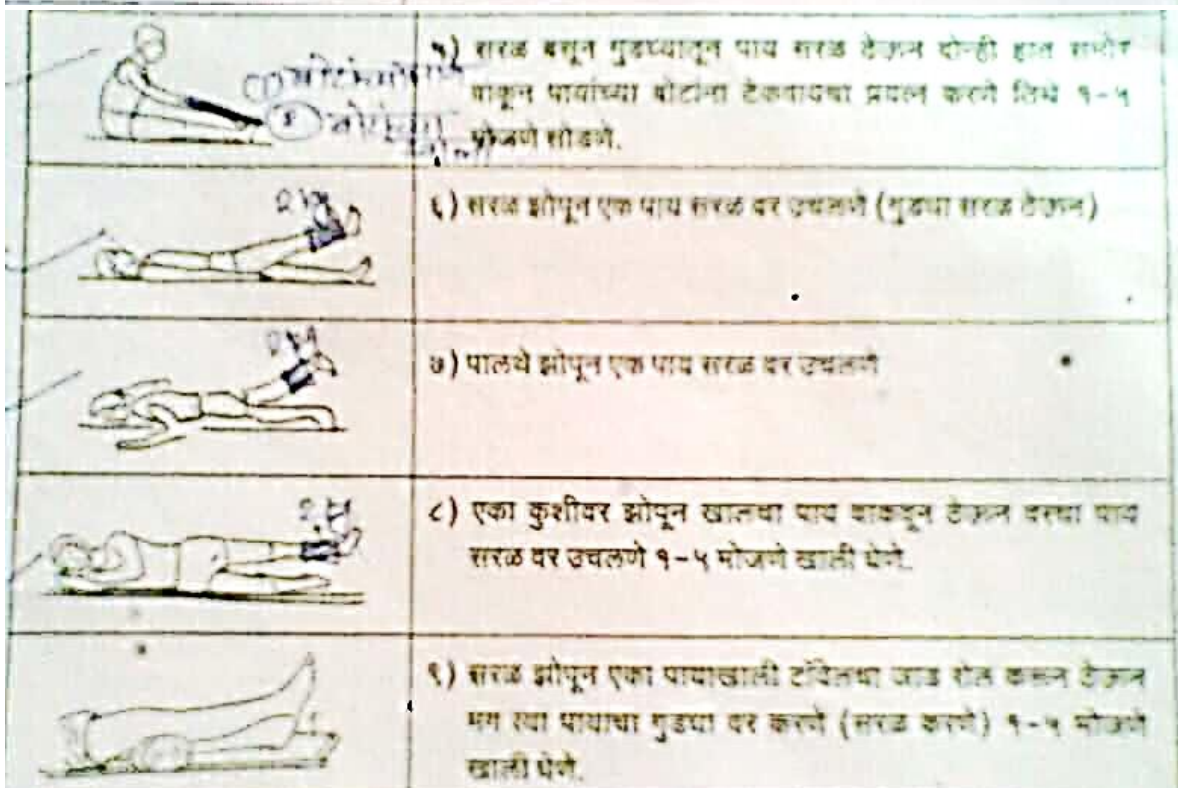 ५) सरळ बसून गुडघ्यातून पाय सरळ ठेऊन दोन्ही हात समोर
वाकून पायांच्या बोटांना टेकवायचा प्रयत्न करणे तिथे १-५
मोजणे सोडणे.
६) सरळ झोपून एक पाय सरळ वर उचलणे (गुडघा सरळ ठेऊन)
७) पालथे झोपून एक पाय सरळ वर उचलणे
८) एका कुशीवर झोपून खालचा पाय वाकवून ठेऊन वरचा पाय
सरळ वर उचलणे १-५ मोजणे खाली घेणे.
९) सरळ झोपून एका पायाखाली टॉवेलचा जाड रोल करून ठेऊन
मग त्या पायाचा गुडघा वर करणे (सरळ करणे) १-५ मोजणे
खाली घेणे.